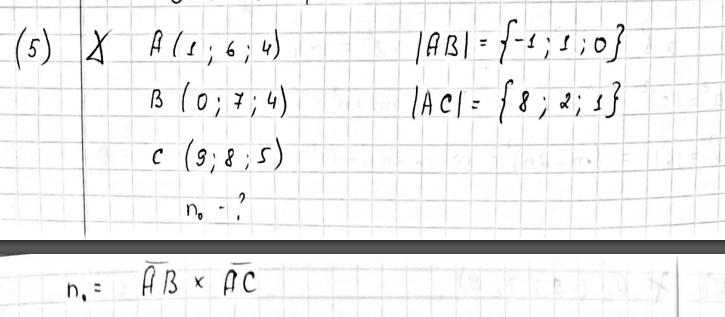 (5) X A (1 ; 6 ; 4) |AB| = {-1 ; 1 ; 0}
B (0 ; 7 ; 4) |AC| = {8 ; 2 ; 1}
C (9 ; 8 ; 5)
n₀ - ?
n₀ = A̅B̅ × A̅C̅